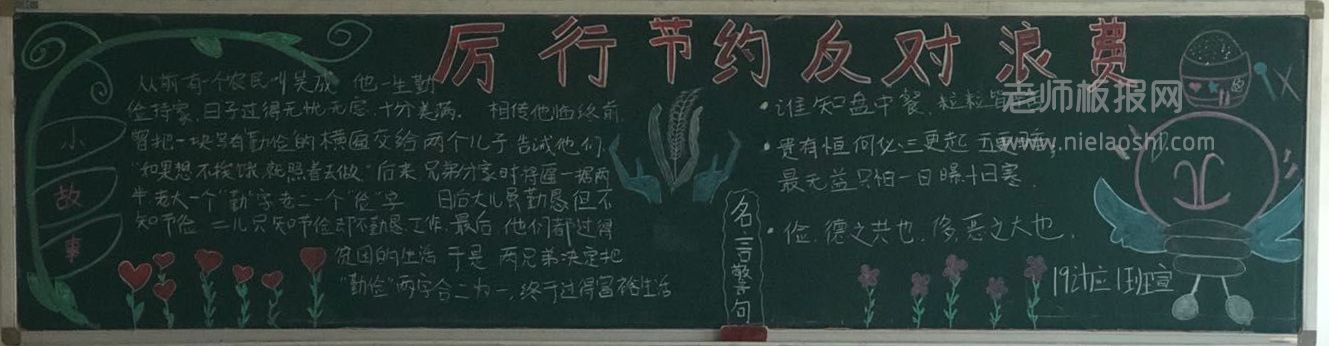 厉行节约反对浪费
老师板报网
www.nielaoshi.com
小故事
从前有个农民叫吴成 他一生勤
俭持家,日子过得无忧无虑,十分美满. 相传他临终前,
曾把一块写有"勤俭"的横匾交给两个儿子告诫他们,
"如果想不挨饿,就照着去做"后来兄弟分家时将匾一据两
半,老大一个"勤"字老二一个"俭"字 日后大儿虽勤恳但不
知节俭 二儿只知节俭却不勤恳工作,最后,他们都过得
贫困的生活 于是 两兄弟决定把
"勤俭"两字合二为一,终于过得富裕生活
名言警句
·谁知盘中餐,粒粒皆
·贵有恒何必三更起 五更眠,
最无益只怕一日曝十日寒.
·俭,德之共也,侈,恶之大也.
19计应1班宣